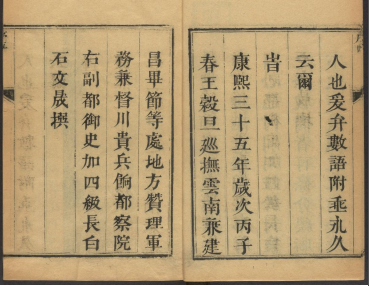 人也爰弁數語附垂永久
云爾
旹
康熙三十五年歲次丙子
春王穀旦廵撫雲南兼建
昌畢節等處地方贊理軍
務兼督川貴兵餉都察院
右副都御史加四級長白
石文晟撰